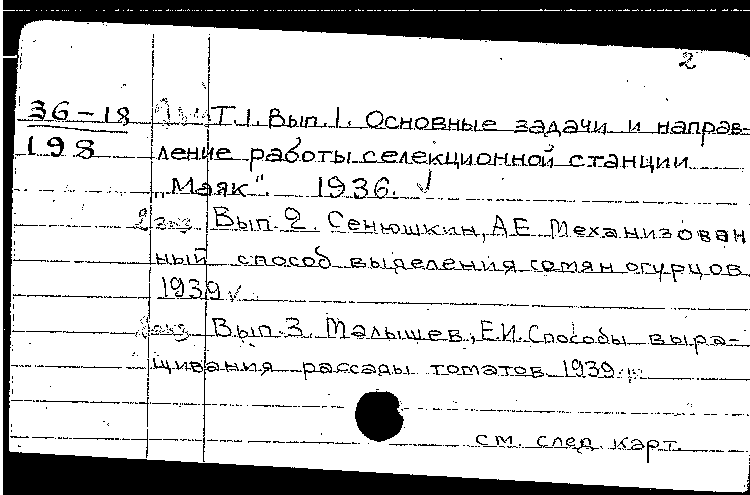 2
36-18 Т.1. Вып.1. Основные задачи и направ-
198 ление работы селекционной станции
„Маяк". 1936. ✓
2 экз Вып. 2. Сенюшкин, А.Е. Механизован
ный способ выделения семян огурцов
1939 ✓
экз Вып. 3. Малышев, Е.И. Способы выра-
щивания рассады томатов 1939.
см. след. карт.